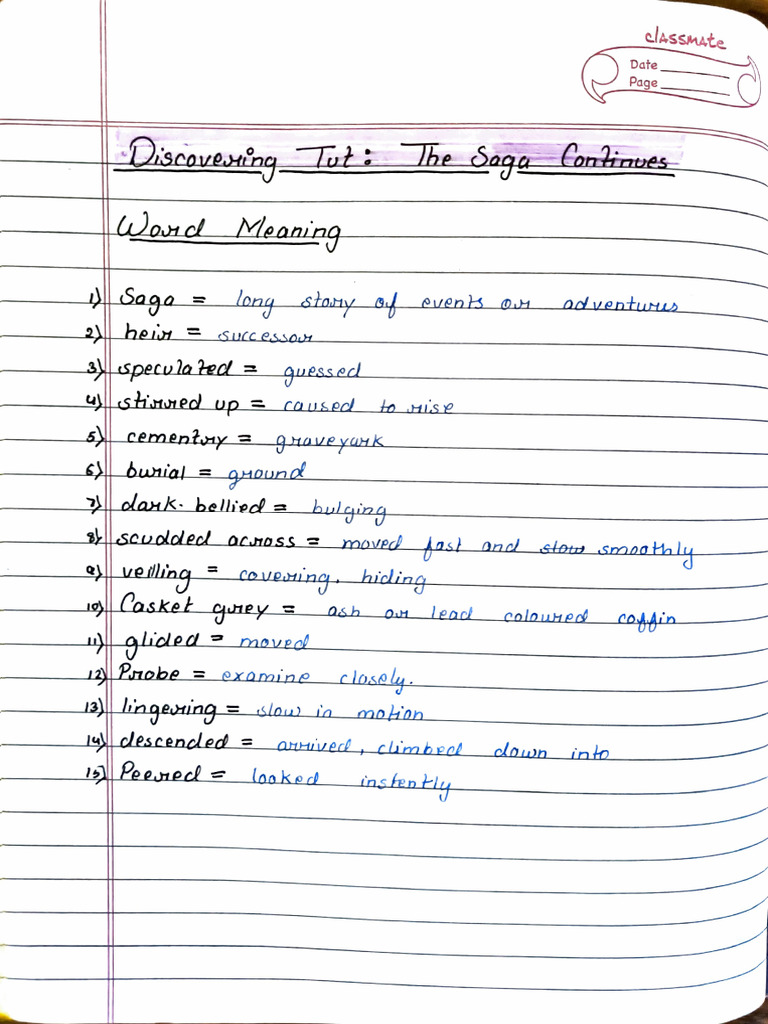 classmate
Date
Page
Discovering Tut: The Saga Continues
Word Meaning
1) Saga = long story of events or adventures
2) heir = successor
3) speculated = guessed
4) stirred up = caused to rise
5) cementry = graveyark
6) burial = ground
7) dark. bellied = bulging
8) scudded across = moved fast and slow smoothly
9) veilling = covering. hiding
10) Casket grey = ash or lead coloured coffin
11) glided = moved
12) Probe = examine closely.
13) lingering = slow in motion
14) descended = arrived, climbed down into
15) Peered = looked instently